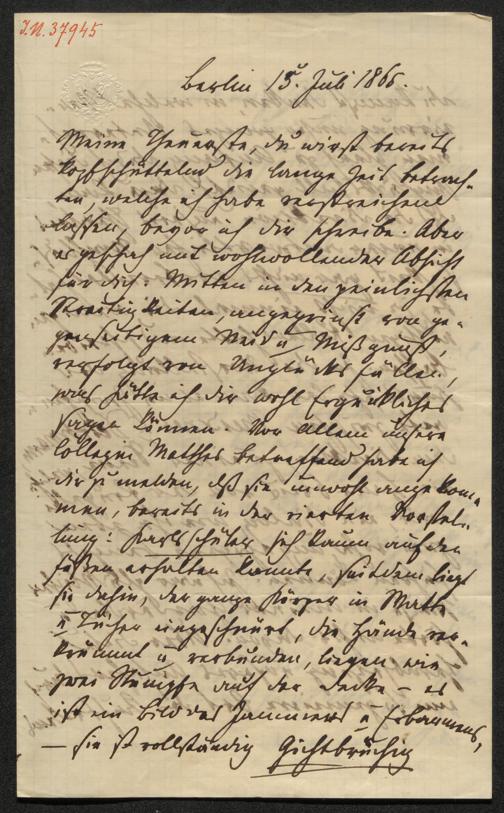 I.N. 37945
Berlin 15. Juli 1866.
Meine Theuerste, du wirst bereits
kopfschüttelnd die lange Zeit betrach-
ten, welche ich habe verstreichend
lassen, bevor ich dir schreibe. Aber
es geschah mit wohlwollender Absicht
für dich: Mitten in den peinlichsten
Streitigkeiten, angegrinst von ge-
genseitigem Neid u Mißgunst,
verfolgt von Unglücksfällen,
was hätte ich dir wohl Erquickliches
sagen können. Vor allem unsere
Collegin Mathes betreffend habe ich
dir zu melden, daß sie unwohl angekom-
men, bereits in der vierten Vorstel-
lung: Karlsschüler sich kaum auf den
Füßen erhalten konnte, seitdem liegt
sie dahin, der ganze Körper in Watte
u Tücher eingeschnürt, die Hände ver-
krümmt u verbunden, liegen wie
zwei Stümpfe auf der Decke – es
ist ein Bild des Jammers u Erbarmens,
– sie ist vollständig Gichtbrüchig